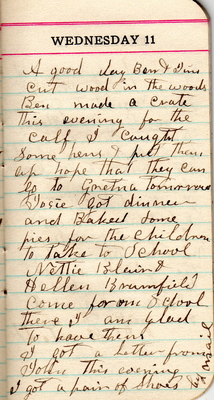 WEDNESDAY 11
A good day Ben & Jim
cut wood in the woods
Ben made a crate
this evening for the
calf I caught
some hens & put them
up hope that they can
go to Gretna tomorrow
Josie got dinner
and Baked some
pies for the children
to take to School
Nettie Blair &
Hellen Bramfield
come for om School
there I am glad
to have them
I got a letter from
John this evening
I got a pair of Shoes
by mail